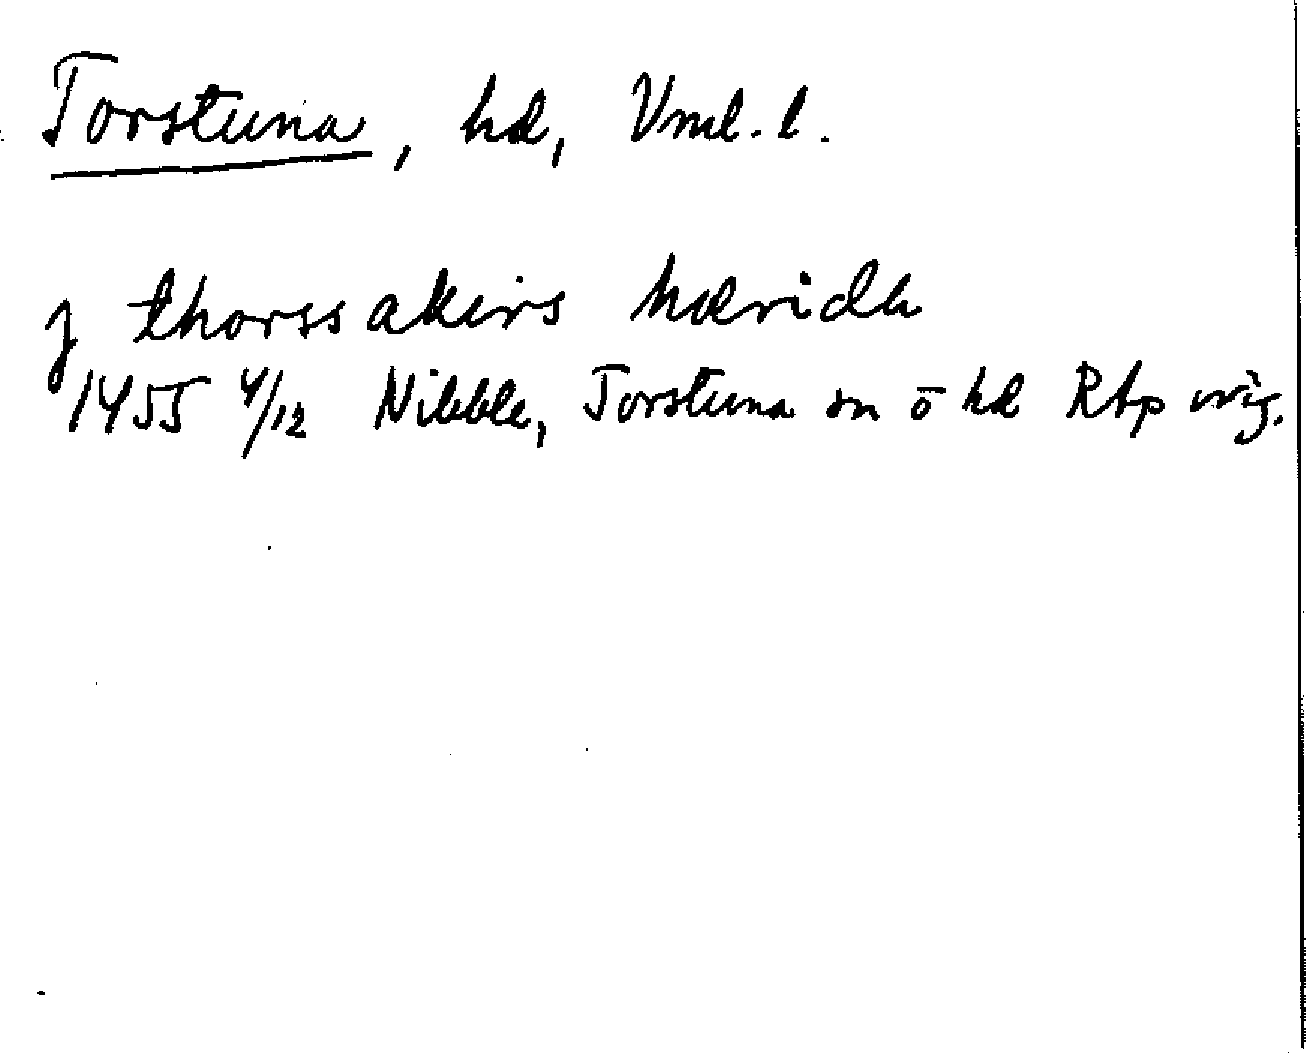 Torstuna, hd, Vml. l.
j thorssakirs hæridh
1455 4/12 Nibble, Torstuna sn o hd RAp orig.